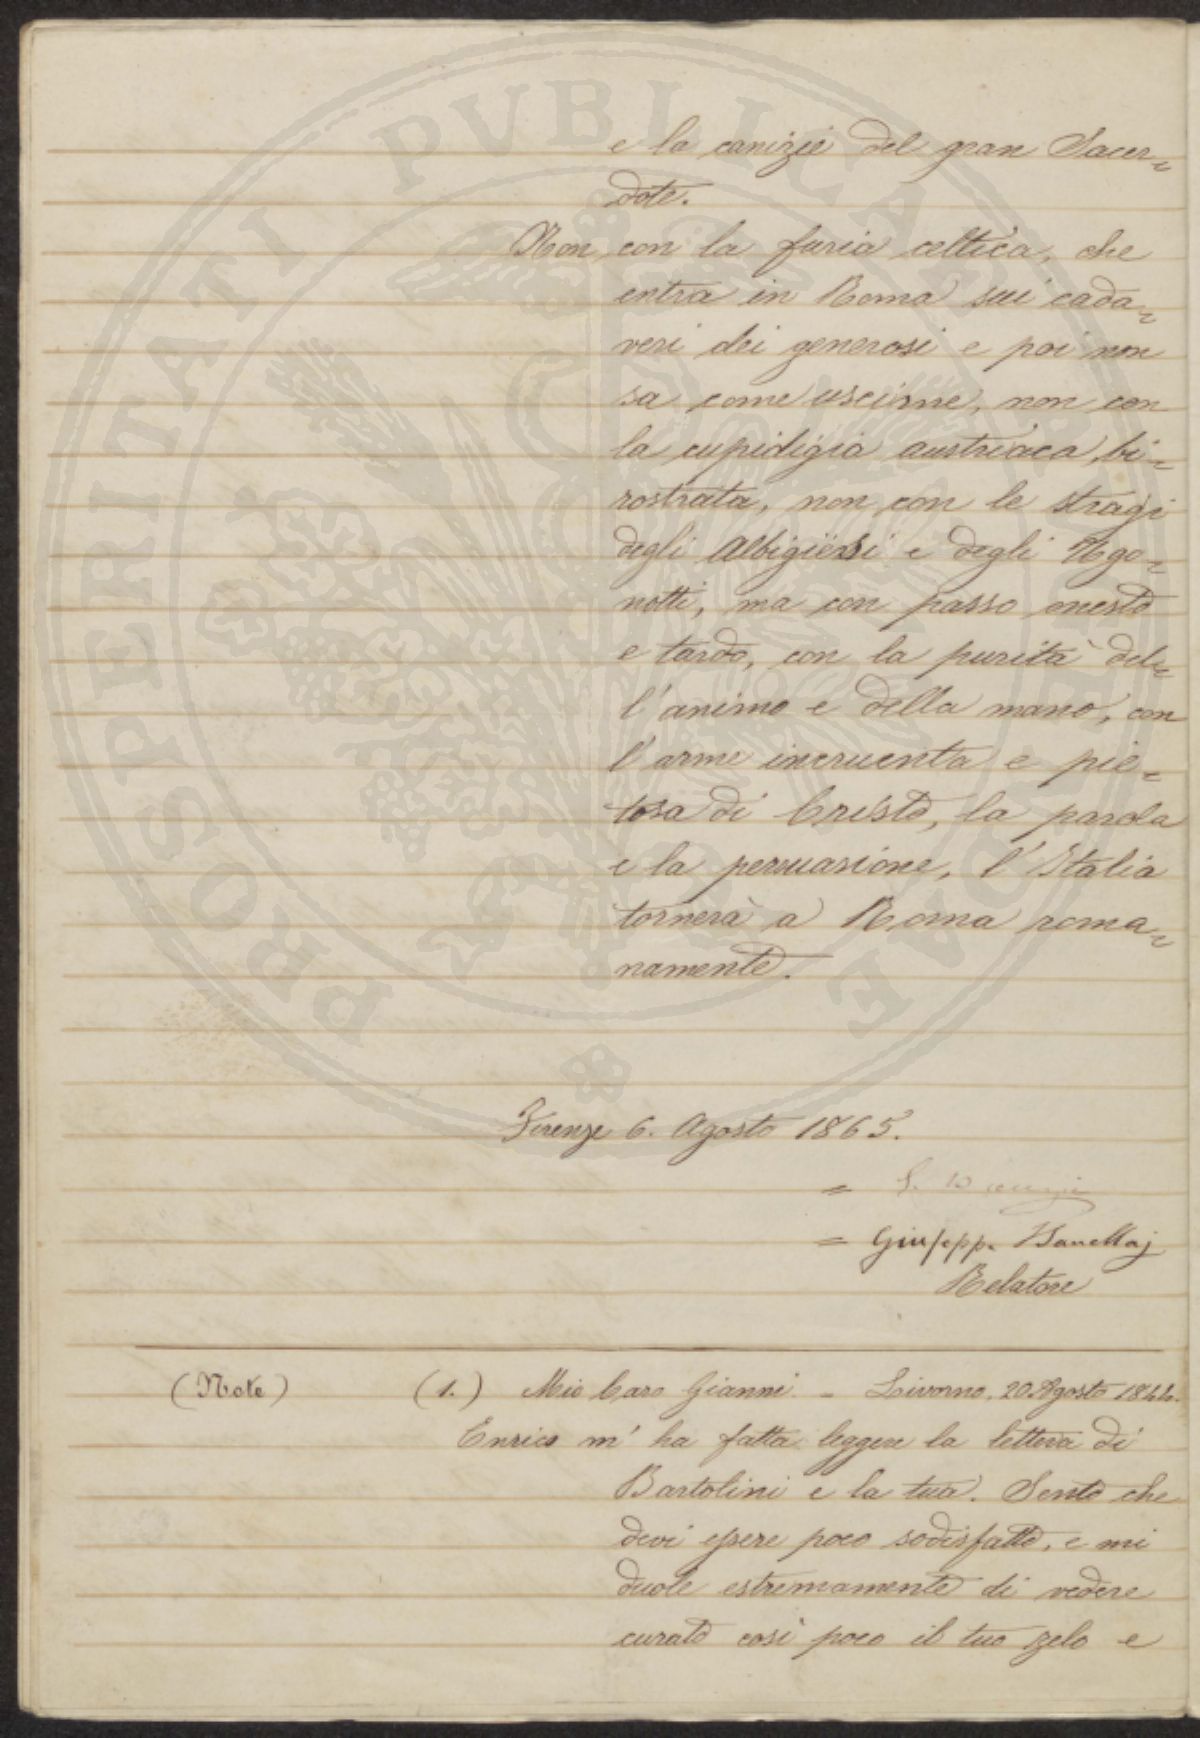 e la canizie del gran Sacer=
dote.
Non con la furia celtica, che
entra in Roma sui cada=
veri dei generosi e poi non
sa come uscirne, non con
la cupidigia austriaca, bi=
rostrata, non con le stragi
degli Albigiesi e degli Ugo=
notti, ma con passo onesto
e tardo, con la purità del=
l'animo e della mano, con
l'arme incruenta e pie=
tosa di Cristo, la parola
e la persuasione, l'Italia
tornerà a Roma roma=
namente.
Firenze 6. Agosto 1865.
=
= Giuseppe
Relatore
(Note) (1.) Mio Caro Gianni. = Livorno, 20 Agosto 1844.
Enrico m'ha fatta leggere la lettera di
Bartolini e la tua. Sento che
devi essere poco sodisfatto, e mi
duole estremamente di vedere
curato così poco il tuo zelo e
PROSPERITATI PUBLICAE AUGENDAE